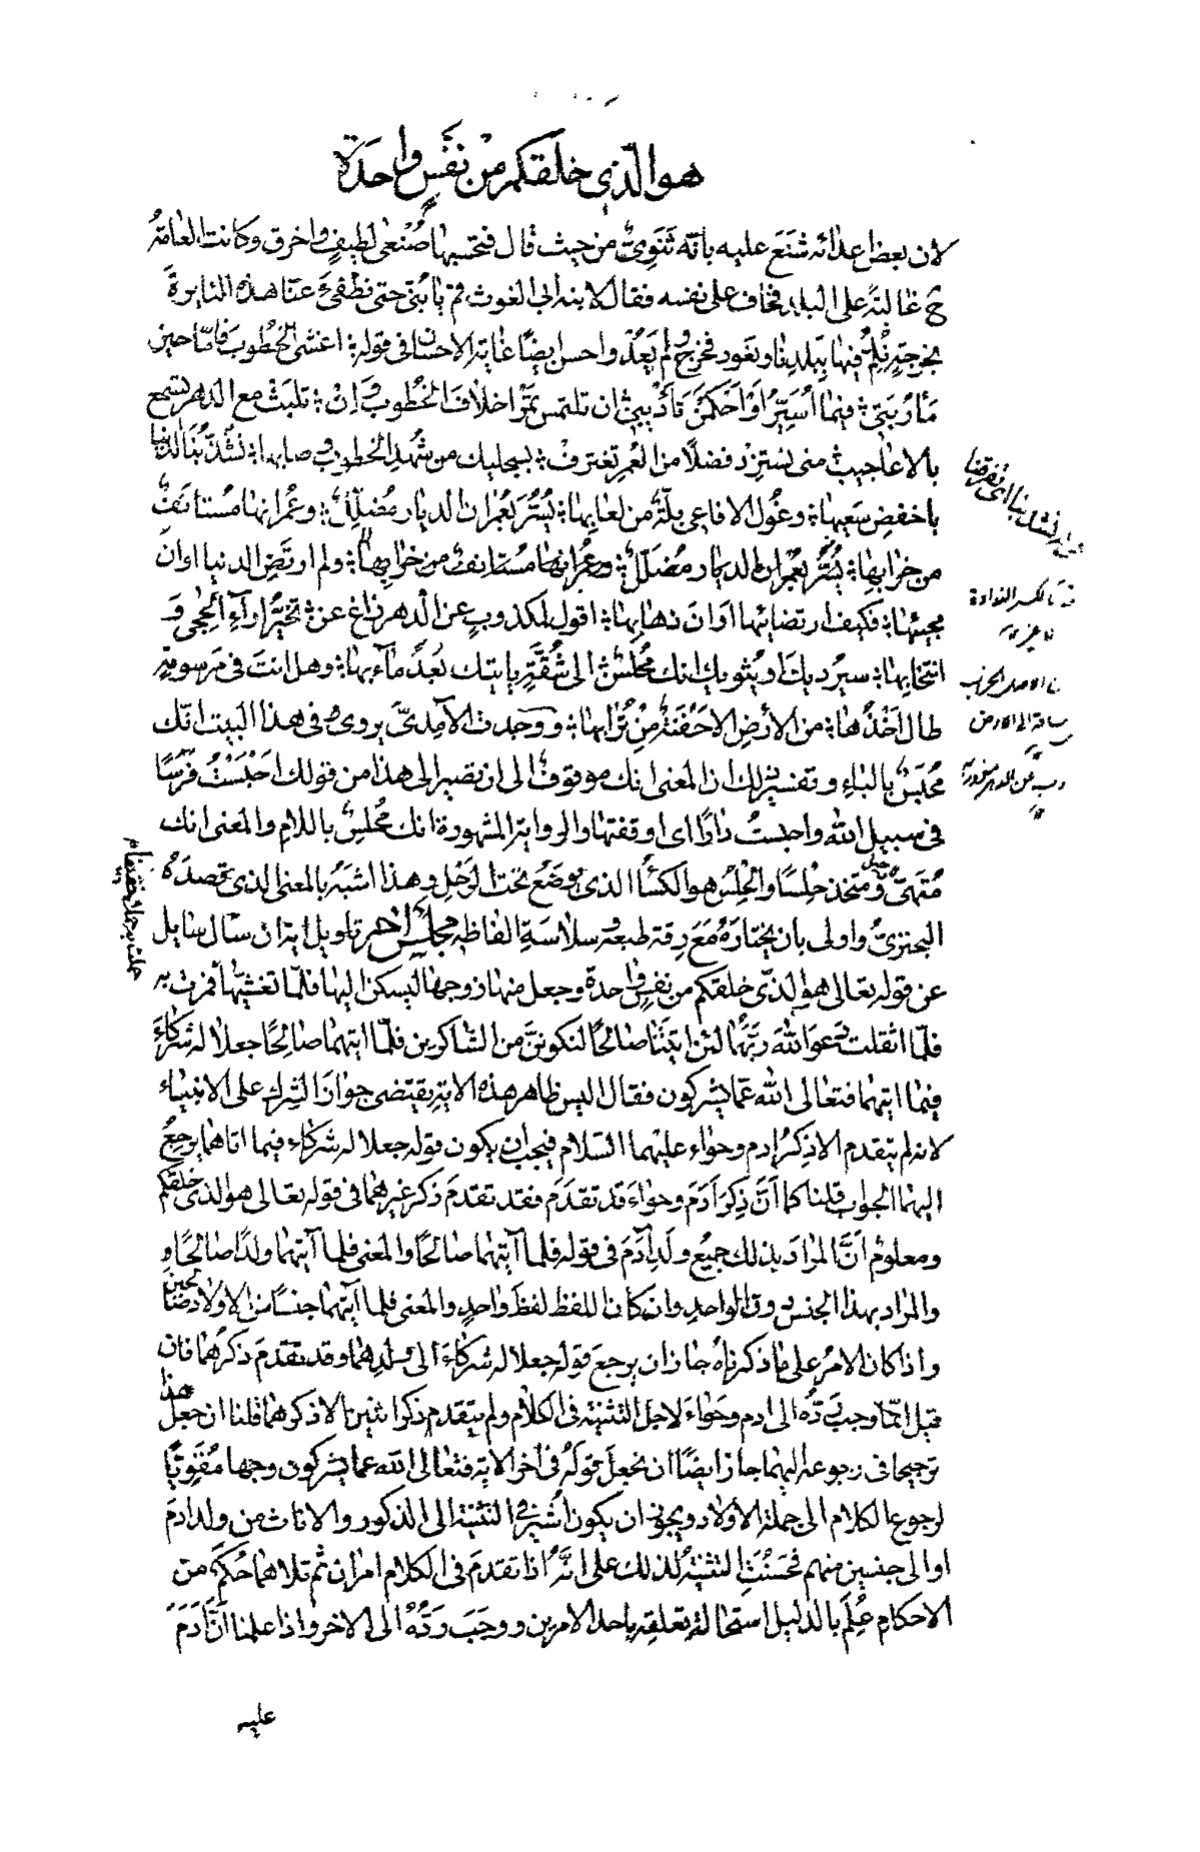 هو الّذي خلقكم من نفسٍ واحدة
لان بعض اعدائه شنّع عليه بانّه ثنويٌّ من حيث قال فتحسبها صُنْعى لطيفٍ واخرق وكانت العامّة
ح غالبةً على البلد فخاف على نفسه فقال لابنه ابى الغوث قم يا بُنىّ حتى نطفئ عنّا هذه النايرة
بخرجةٍ نُلِمُّ فيها ببلدنا ونعود فخرج ولم يَعُدْ واحسن ايضًا غاية الاحسان فى قوله؛ اغشى الخُطُوبَ فامّا حين
مَأرُبَتى؛ فيما اُسَيِّرُ اَوْ اَحْكَمْنَ تَأديبى؛ ان تلتمس تَمْرِ اخلافَ الخُطُوب وَاِنْ؛ تلبَثْ مع الدهر تسمع
بالاعاجيب؛ متى تستزد فضلًا من العُمر تغترف؛ بسجليك من شُهْدِ الخطوب وصابها؛ تشذّبنا الدنيا
باخفض سَعيها؛ وغُول الافاعى بلّةٌ من لعابها؛ يُسَرُّ بعُمران الديار مُضَلَّلٌ؛ وعُمرانها مُستانَفٌ
من خرابها؛ يُسَرُّ بعُمران الديار مضلّلٌ؛ وعمرانها مستانفٌ من خرابها؛ ولم ارتضِ الدنيا اوان
مجيئها؛ فكيف ارتضائيها اَوَانَ ذهابها؛ اقول لمكذوبٍ عن الدهر زاغ عن؛ تخيّر اراء الحِجى و
انتخابها؛ سيُرديكَ او يُثويك انك مُحلِسٌ؛ الى شُقّةٍ يبليك بُعدُ مَآءبها؛ وهل انتَ فى مرسومة
طال اَخْذُها؛ من الأرض الا حَفْنَةٌ مِنْ تُرابها؛ ووجدت الآمِدىَّ يروى فى هذا البيت انّك
مُحبَسٌ بالباء وتفسير ذلك ان المعنى انك موقوفٌ الى ان تصير الى هذا من قولك احْبَسْتُ فَرَسًا
فى سبيل الله واحبستُ دارًا اى اوقفتها والرواية المشهورة انك مُحلِسٌ باللام والمعنى انك
مُتَهَىٌّ ومتّخذ حِلسًا والحِلْسُ هو الكسأ الذى يوضَعُ تحت الرَحْل وهذا اشبَهُ بالمعنى الذى قصدَهُ
البحترىُّ واولى بان يختارَهُ مَعَ رِقة طبعه وسلاسَةِ الفاظه مجلسٌ اٰخر تاويل اية ان سأل سايل
عن قوله تعالى هو الذى خلقكم من نفس واحدة وجعل منها زوجها ليسكن اليها فلمّا تغشّيها فمرت به
فلمّا اثقلت دعوا الله ربّهُما لئن اتيتَنا صالحًا لنكوننّ من الشاكرين فلمّا اتيهما صالحًا جعلا له شركاءَ
فيما اتيهما فتعالى الله عمّا يشركون فقال اليس ظاهر هذه الاية يقتضى جوازَ الشرك على الانبياء
لانه لم يتقدم الا ذِكرُ ادم وحواء عليهما السّلام فيجب ان يكون قوله جعلا له شركاء فيما اتاهما يرجعُ
اليهما الجواب قلنا كما اَنَّ ذِكرَ اَدَمَ وحواءَ قد تقدَمَ فقد تقدمَ ذكر غيرهما فى قوله تعالى هو الذى خلقكم
ومعلومٌ اَنَّ المرادَ بذلك جميع ولدِ آدَمَ فى قوله فلما آتيهُما صالحًا والمعنى فلما آتيهُما ولدًا صالحًا و
والمراد بهذا الجنس دون الواحد وان كان اللفظ لفظَ واحدٍ والمعنى فلما آتيهُما جنسًا من الاولاد صالحين
واذا كان الامرُ على ما ذكرناهُ جاز ان يرجعَ قوله جعلا له شركاءَ الى ولدِهما وقد تقدمَ ذكرُهما فان
قيل انّما وجب رَدُّه الى ادم وحواءَ لاجل التثنية فى الكلام ولم يتقدم ذكر اثنين الا ذكرهما قلنا ان جعل هذا
ترجيحا فى رجوعه اليهما جاز ايضًا ان نجعلَ قولَهُ فى اخر الاية فتعالى الله عما يشركون وجها مُقَوِيًّا
لرجوع الكلام الى جملة الاولاد ويجوز ان يكون اُشير فى التثنية الى الذكور والاناث من ولد ادمَ
او الى جنسين منهم فحَسُنَتِ التثنيةُ لذلك على انّهُ اذا تقدمَ فى الكلام امران ثُم تلاهما حُكمٌ من
الاحكام عُلِمَ بالدليل استحالةُ تعلقه باحد الامرين ووجَبَ رَدُّهُ الى الاخر واذا علمنا اَنَّ اَدَمَ
عليه